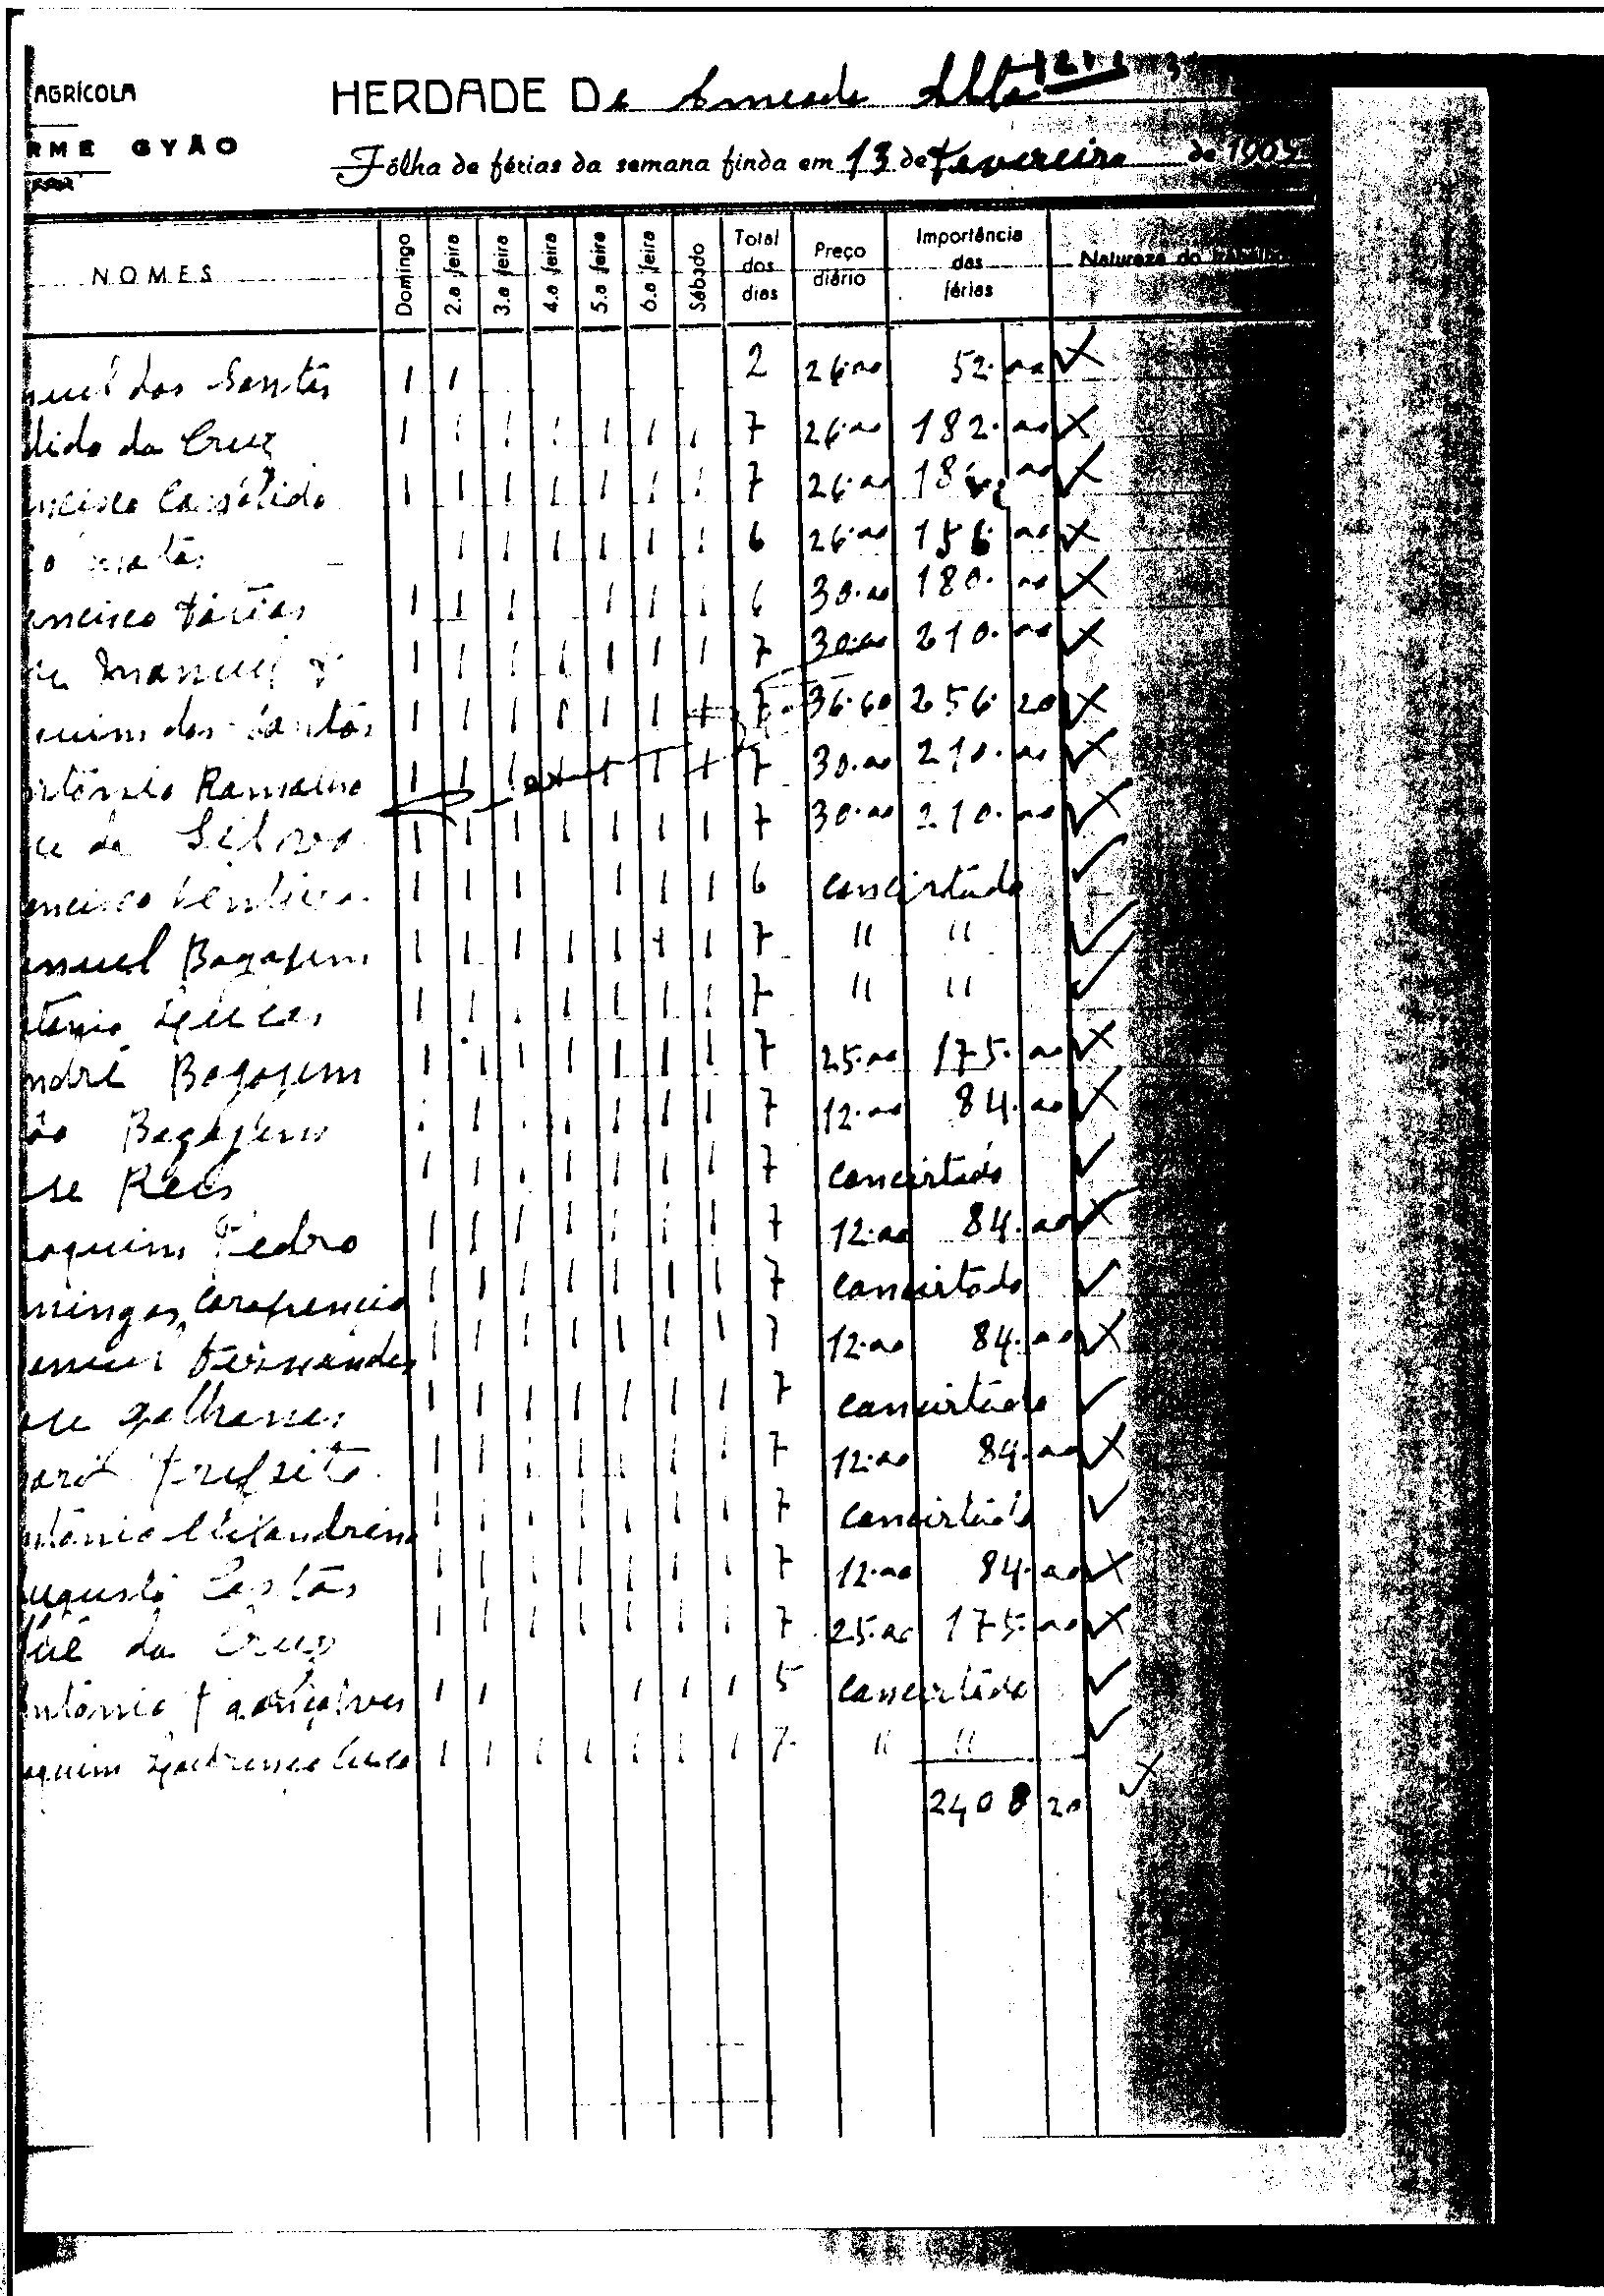 AGRÍCOLA
HERDADE De Ameada Alta
RME GYÃO
Fôlha de férias da semana finda em 13 de Fevereiro de 1965
NOMES Domingo 2.a feira 3.a feira 4.a feira 5.a feira 6.a feira Sábado Total dos dias Preço diário Importância das férias Natureza do trabalho
nuel dos Santos 1 1 2 26.00 52.00
dido da Cruz 1 1 1 1 1 1 1 7 26.00 182.00
ncisco 1 1 1 1 1 1 1 7 26.00 182.00
1 1 1 1 1 1 6 26.00 156.00
ancisco 1 1 1 1 1 1 6 30.00 180.00
Manuel 1 1 1 1 1 1 1 7 30.00 210.00
quim dos Santos 1 1 1 1 1 1 1 7 36.60 256.20
ntónio Ramalho 1 1 1 1 1 1 1 7 30.00 210.00
se da Silva 1 1 1 1 1 1 1 7 30.00 210.00
ancisco 1 1 1 1 1 1 6 concirtado
anuel Bagajem 1 1 1 1 1 1 1 7 " "
tónio Lucas 1 1 1 1 1 1 1 7 " "
ndré Bagajem 1 1 1 1 1 1 1 7 25.00 175.00
ão Bagajem 1 1 1 1 1 1 1 7 12.00 84.00
se Reis 1 1 1 1 1 1 1 7 concirtado
oaquim Pedro 1 1 1 1 1 1 1 7 12.00 84.00
mingos 1 1 1 1 1 1 1 7 concirtado
Fernandes 1 1 1 1 1 1 1 7 12.00 84.00
ose galhanas 1 1 1 1 1 1 1 7 concirtado
1 1 1 1 1 1 1 7 12.00 84.00
ntónio Alixandrino 1 1 1 1 1 1 1 7 concirtado
ugusto Costas 1 1 1 1 1 1 1 7 12.00 84.00
da Cruz 1 1 1 1 1 1 1 7 25.00 175.00
ntónio F gonçalves 1 1 1 1 1 5 concirtado
aquim 1 1 1 1 1 1 1 7 " "
2408 20